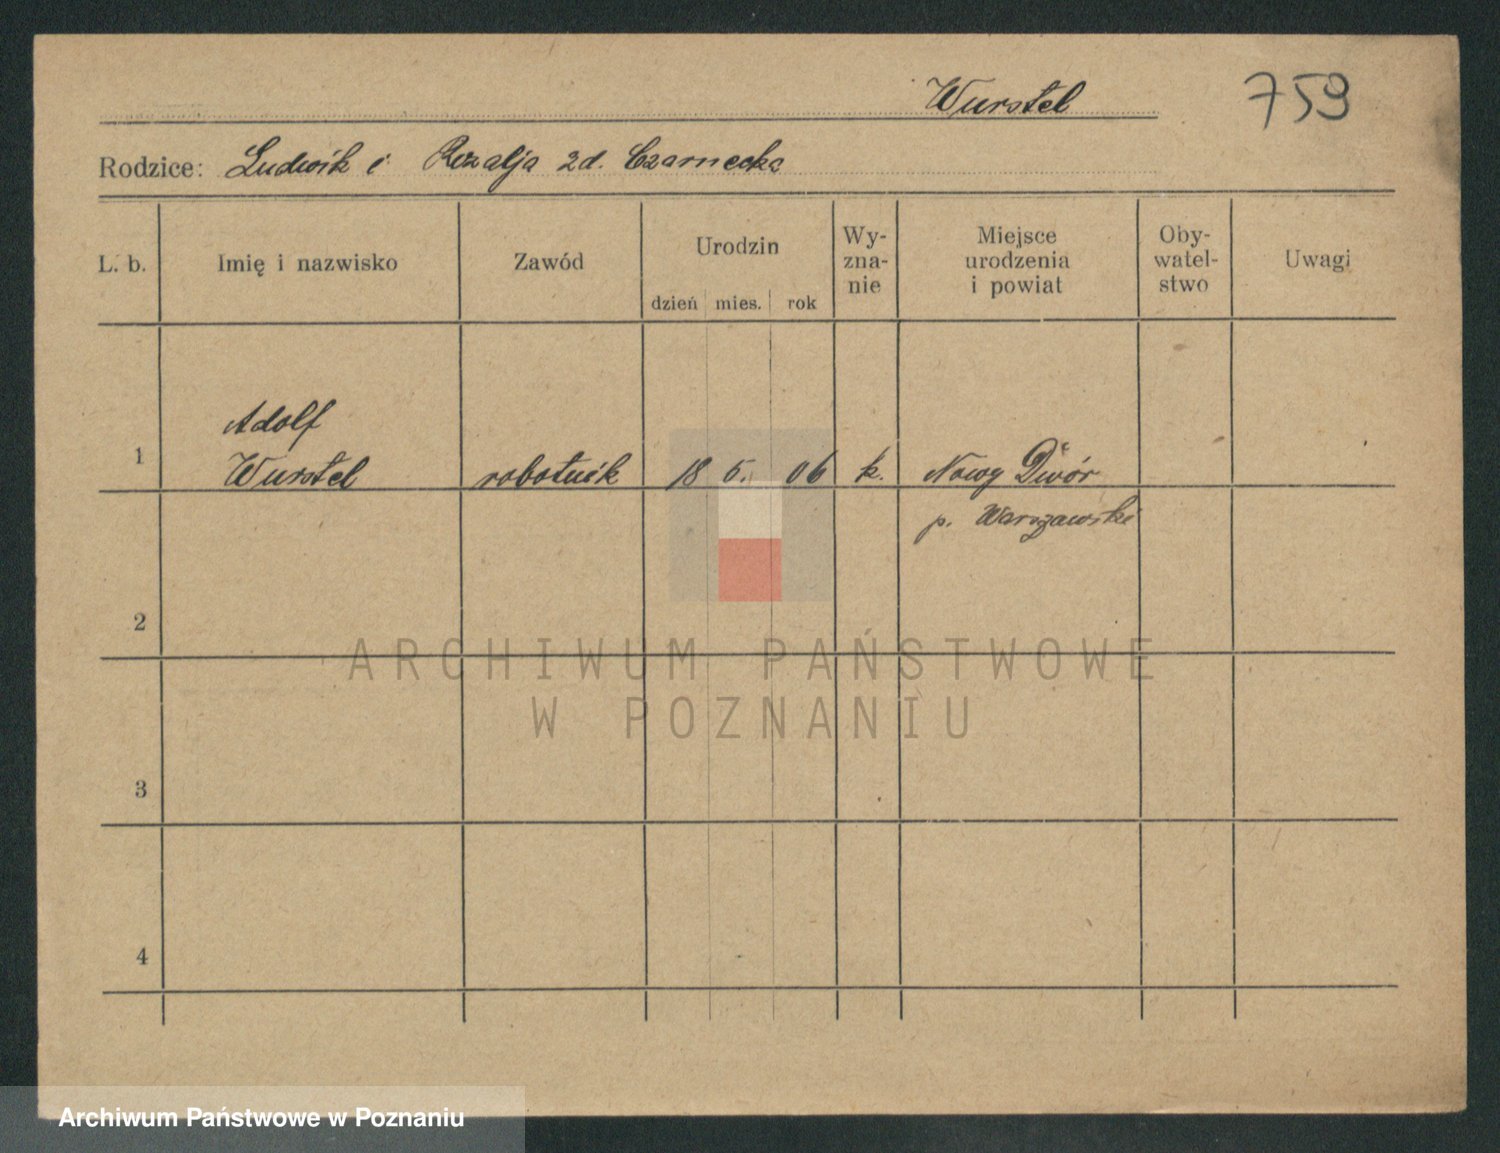 Wurstel
759
Rodzice: Ludwik i Rozalja zd. Czarnecka
L. b. Imię i nazwisko Zawód Urodzin Wy-zna-nie Miejsce urodzenia i powiat Oby-watel-stwo Uwagi
dzień mies. rok
Adolf
1 Wurstel robotnik 18 5. 06 k. Nowy Dwór
p. Warszawski
2
ARCHIWUM PAŃSTWOWE
W POZNANIU
3
4
Archiwum Państwowe w Poznaniu